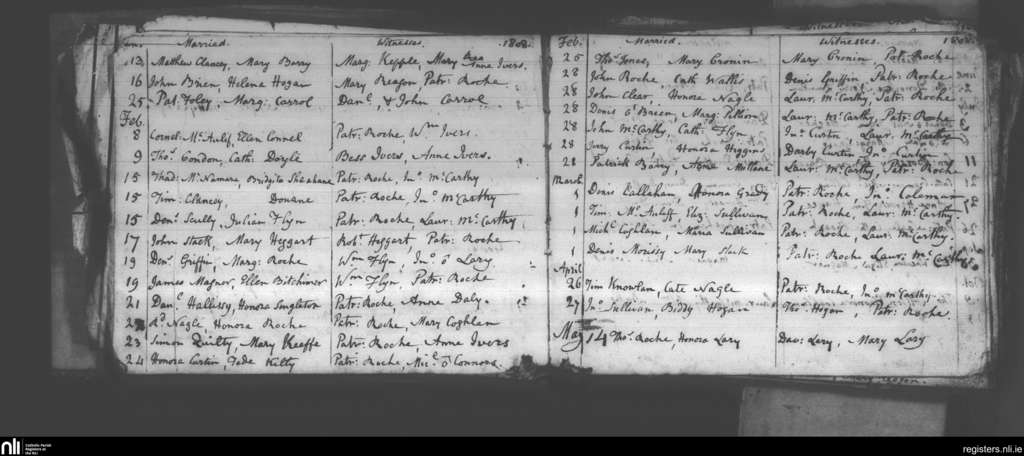 Married. Witnesses. 1808.
13 Matthew Clancy, Mary Barry Marg. Kepple, Mary Anne Ivers.
16 John Brien, Helena Hogan Mary Reagan, Patr: Roche
25 Pat Foley, Marg: Carrol Danl. & John Carrol
Feb.
8 Cornel: McAulif, Ellen Connel Patr: Roche, Wm Ivers.
9 Thos. Condon, Cath: Doyle Bess Ivers, Anne Ivers.
15 Thad: McNamara, Bridgita Sheahane Patr: Roche, Jno McCarthy
15 Tim: Clancey, Donane Patr: Roche, Jno McCarthy
15 Dens: Scully, Julian Flyn Patr: Roche, Laur: McCarthy
17 John Stack, Mary Heggart Robt. Heggart Patr: Roche
19 Dens. Griffin, Marg: Roche Wm Flyn, Jno ó Lary
19 James Magner, Ellen Bitchinor Wm Flyn, Patr: Roche
21 Danl. Hallissy, Honora Singleton Patr: Roche, Anne Daly
Rd. Nagle, Honora Roche Patr: Roche, Mary Coghlan
23 Simon Quilty, Mary Keeffe Patr: Roche Anne Ivers
24 Honora Curtin, Tade Kilty Patr: Roche, Micl. O'Connors.
Feb. Married. Witnesses. 1808
25 Thos. Jones, Mary Cronin Mary Cronin Patr: Roche
28 John Roche, Cath Walsh Denis Griffin, Patr: Roche
28 John Clear, Honora Nagle Laur. McCarthy, Patr: Roche
28 Denis O'Brien, Marg: Laur: McCarthy, Patr: Roche
28 John McCarthy, Cath: Flyn Jno Curtin Laur. McCarthy
28 Jerry Curtin Honora Higgins Darby Curtin Jno Curtin
28 Patrick Barry, Anne Mullane Laur: McCarthy, Patr: Roche
March
1 Denis Callahan, Honora Grady Patr: Roche Jno Coleman
1 Tim: McAuliff, Eliz: Sullivan Patr: Roche, Laur: McCarthy.
1 Michl Coghlan, Maria Sullivan Patr: Roche, Laur: McCarthy
1 Denis Mary Stack Patr: Roche Laur: McCarthy
April
26 Tim Knowlan, Cate Nagle Patr: Roche, Jno McCarthy
27 Jno Sullivan, Biddy Hogan Thos Hogan, Patr: Roche.
May 14 Thos. Roche, Honora Lary Dav: Lery, Mary Lary
nli Catholic Parish Registers at the NLI
registers.nli.ie